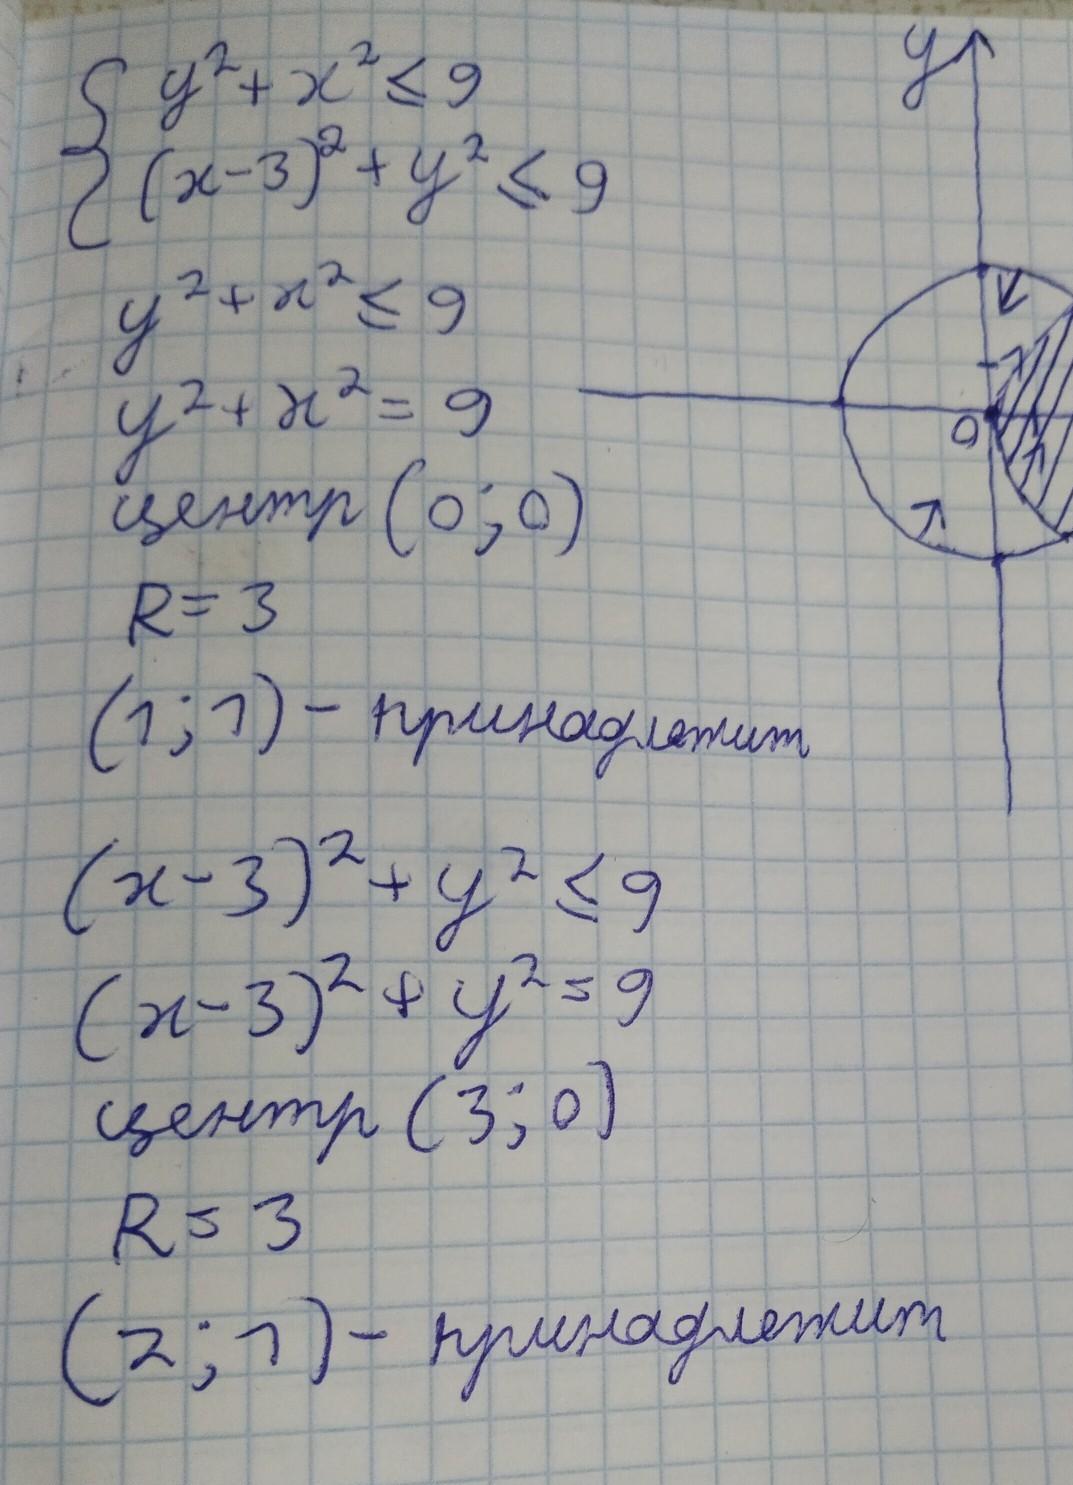 { y² + x² ≤ 9
(x-3)² + y² ≤ 9
y
y² + x² ≤ 9
y² + x² = 9
0
центр (0; 0)
R = 3
(1; 1) - принадлежит
(x-3)² + y² ≤ 9
(x-3)² + y² = 9
центр (3; 0)
R = 3
(2; 1) - принадлежит